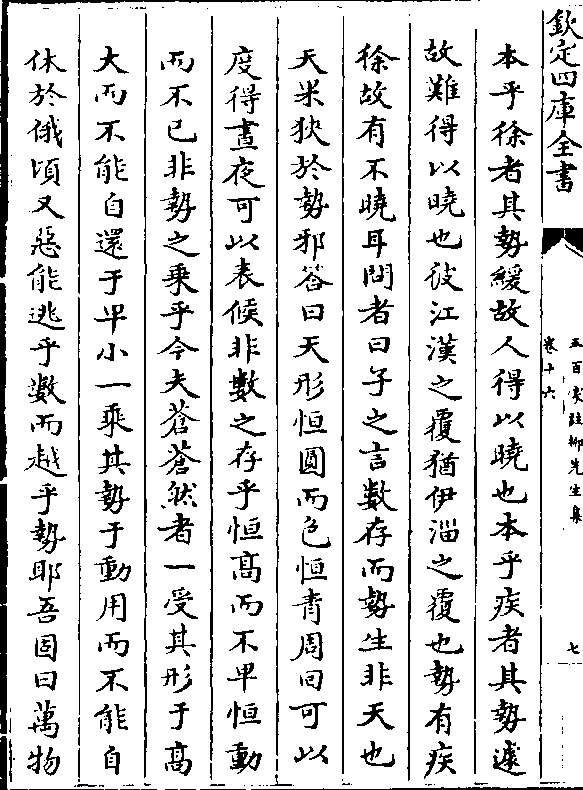 欽定四庫全書
五百家註柳先生集
卷十六
七
本乎徐者其勢緩故人得以曉也本乎疾者其勢遽
故難得以曉也彼江漢之覆猶伊淄之覆也勢有疾
徐故有不曉耳問者曰子之言數存而勢生非天也
天果狹於勢邪答曰天形恒圓而色恒青周回可以
度得晝夜可以表候非數之存乎恒髙而不卑恒動
而不已非勢之乗乎今夫蒼蒼然者一受其形于髙
大而不能自還于卑小一乘其勢于動用而不能自
休於俄頃又惡能逃乎數而越乎勢耶吾固曰萬物